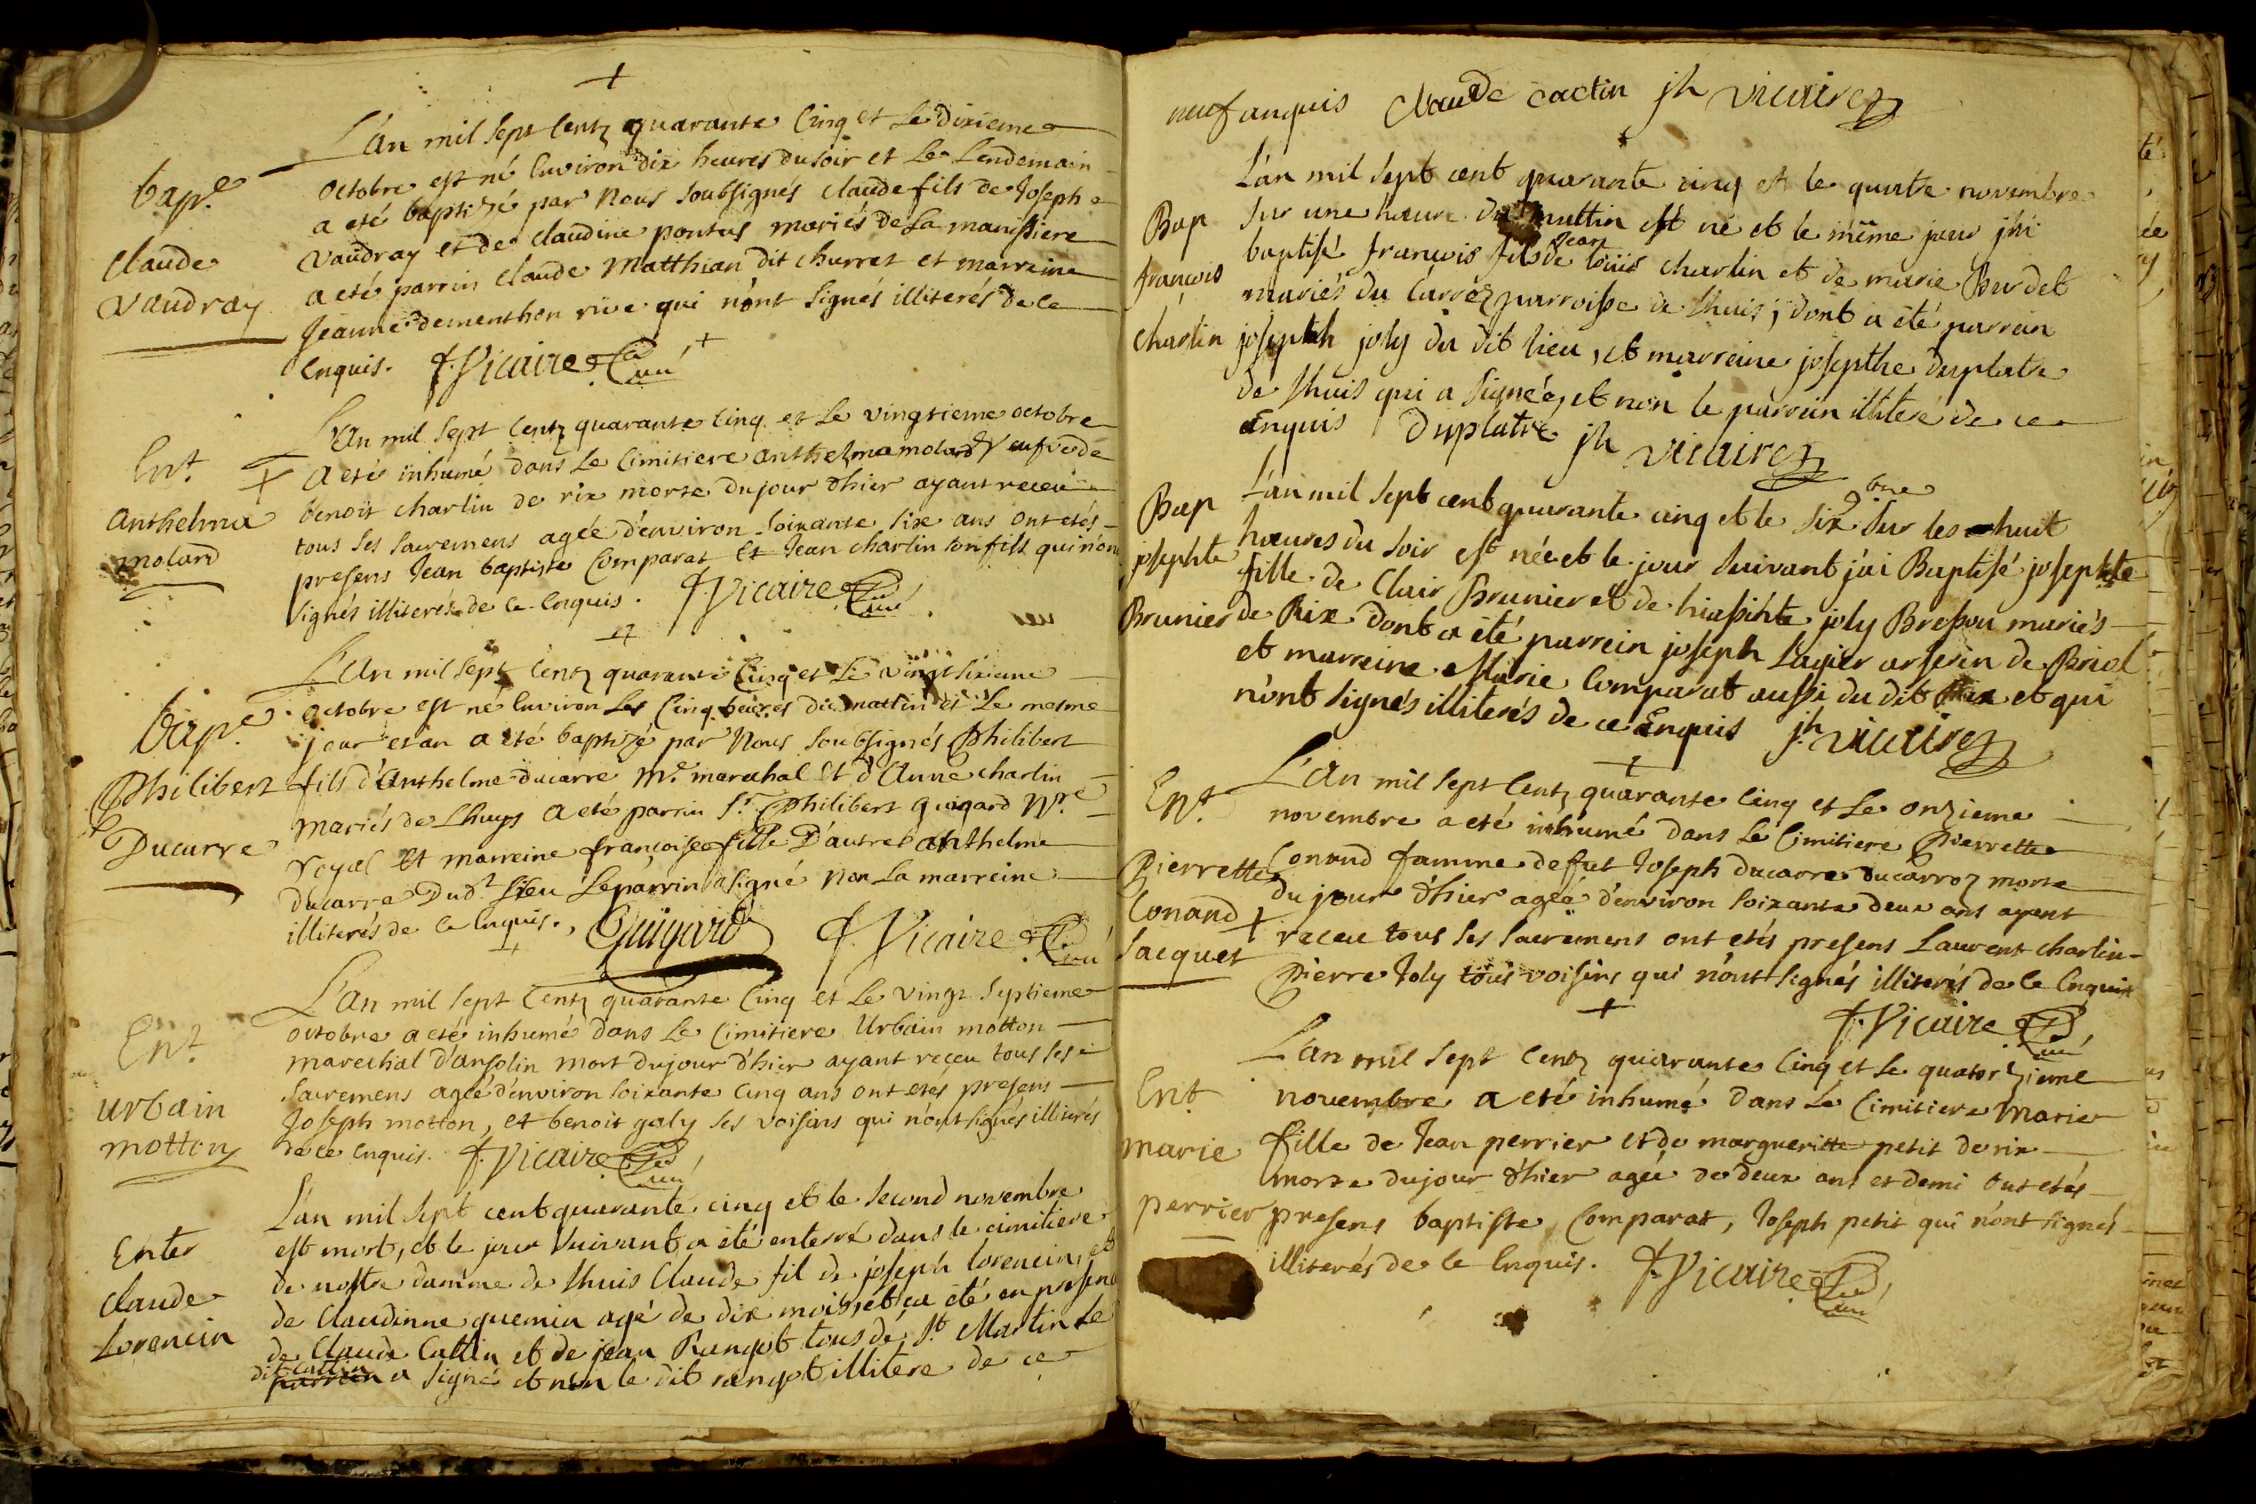 L'an mil sept centz quarante Cinq et Le Dixieme
bap.e
octobre est né Environ dix heures du soir et Le Lendemain
a eté baptizé par Nous soubsignés claude fils de Joseph
Claude
vaudray et de claudine pontus mariés de La manissiere
vaudray
a eté parrin claude Matthian dit churret et marreine
Jeanne dementhon rive qui n'ont signés illiterés de ce
Enquis. f. Vicaire Curé
L'An mil sept Centz quarante Cinq et Le vingtieme octobre
Ent.
a eté inhumé dans Le Cimitiere anthelma molard veufve de
benoit charlin de rix morte du jour d'hier ayant receu
anthelma
tous ses sacremens agée d'environ soixante six ans ont etés
molard
presens Jean baptiste Comparat Et Jean charlin son fils qui n'ont
signés illiterés de Ce Enquis. f. Vicaire Curé
L'An mil sept Centz quarante Cinq et Le vingt sixieme
octobre est né Environ Les Cinq heures du mattin et Le mesme
bap.e
jour et an a eté baptizé par Nous soubsignés Philibert
Philibert
fils d'Anthelme ducarre M.e marechal Et d'Anne charlin
mariés de Lhuys a eté parrin S.r Philibert Guigard N.re
Ducarre
royal Et marreine françoise fille D'autre anthelme
ducarre Dud.t Lieu Le parrin a signé non La marreine
illiterés de Ce Enquis. Guigard f. Vicaire Curé
L'An mil sept Centz quarante Cinq et Le vingt septieme
Ent.
octobre a eté inhumé dans Le Cimitiere Urbain motton
marechal d'ansolin mort du jour d'hier ayant receu tous ses
urbain
sacremens agée d'environ soixante Cinq ans ont etes presens
motton
Joseph motton, et benoit galy ses voisins qui n'ont signés illiterés
de ce Enquis. f. Vicaire Curé
L'an mil sept cent quarante cinq et le second novembre
Enter
est mort, et le jour suivant a été enterré dans le cimitiere
de nostre damme de lhuis Claude fil de joseph lorencin, et
Claude
de Claudinne quemin agé de dix mois, et ça été en presence
Lorencin
de Claude Cattin et de jean Rangot tous de S.t Martin Le
dit cattin a signé et non le dit rangot illitere de ce
neuf anquis Claude cactin jh vicaire
L'an mil sept cent quarante cinq et le quatre novembre
Bap
sur une heure du mattin est né et le même jour j'ai
baptisé françois fils de Jean charlin et de marie Burdet
françois
mariés du Carroz parroisse de lhuis; dont a été parrain
charlin
josephth joly du dit lieu, et marreine josepthe duplatre
de lhuis qui a signée, et non le parrain illiteré de ce
enquis Duplatre jh vicaire
L'an mil sept cent quarante cinq et le six 9bre sur les huit
Bap
heures du soir est née et le jour suivant j'ai Baptisé josephte
josephte
fille de Clair Brunier et de hiassinte joly Bressou mariés
Brunier
de Rix dont a été parrein joseph Lagier arserin de Briel
et marreine Marie Comparat aussi du dit Rix et qui
n'ont signés illiterés de ce Enquis jh vicaire
L'An mil sept Centz quarante Cinq et Le onzieme
Ent.
novembre a eté inhumé dans Le Cimitiere Pierrette
Pierrette
Conand famme de fut Joseph ducarre ducarroz morte
du jour d'hier agée d'environ soixante deux ans ayent
Conand
receu tous ses sacremens ont etés presens Laurent charlin
Jacquet
Pierre Joly tous voisins qui n'ont signés illiterés de Ce Enquis
f. Vicaire Curé
L'An mil sept Centz quarante Cinq et Le quatorzieme
Ent.
novembre a eté inhumé dans Le Cimitiere marie
marie
fille de Jean perrier et de margueritte petit de rix
morte du jour d'hier agée de deux ans et demi ont etés
perrier
presens baptiste Comparat, Joseph petit qui n'ont signés
illiterés de ce Enquis. f. Vicaire Curé